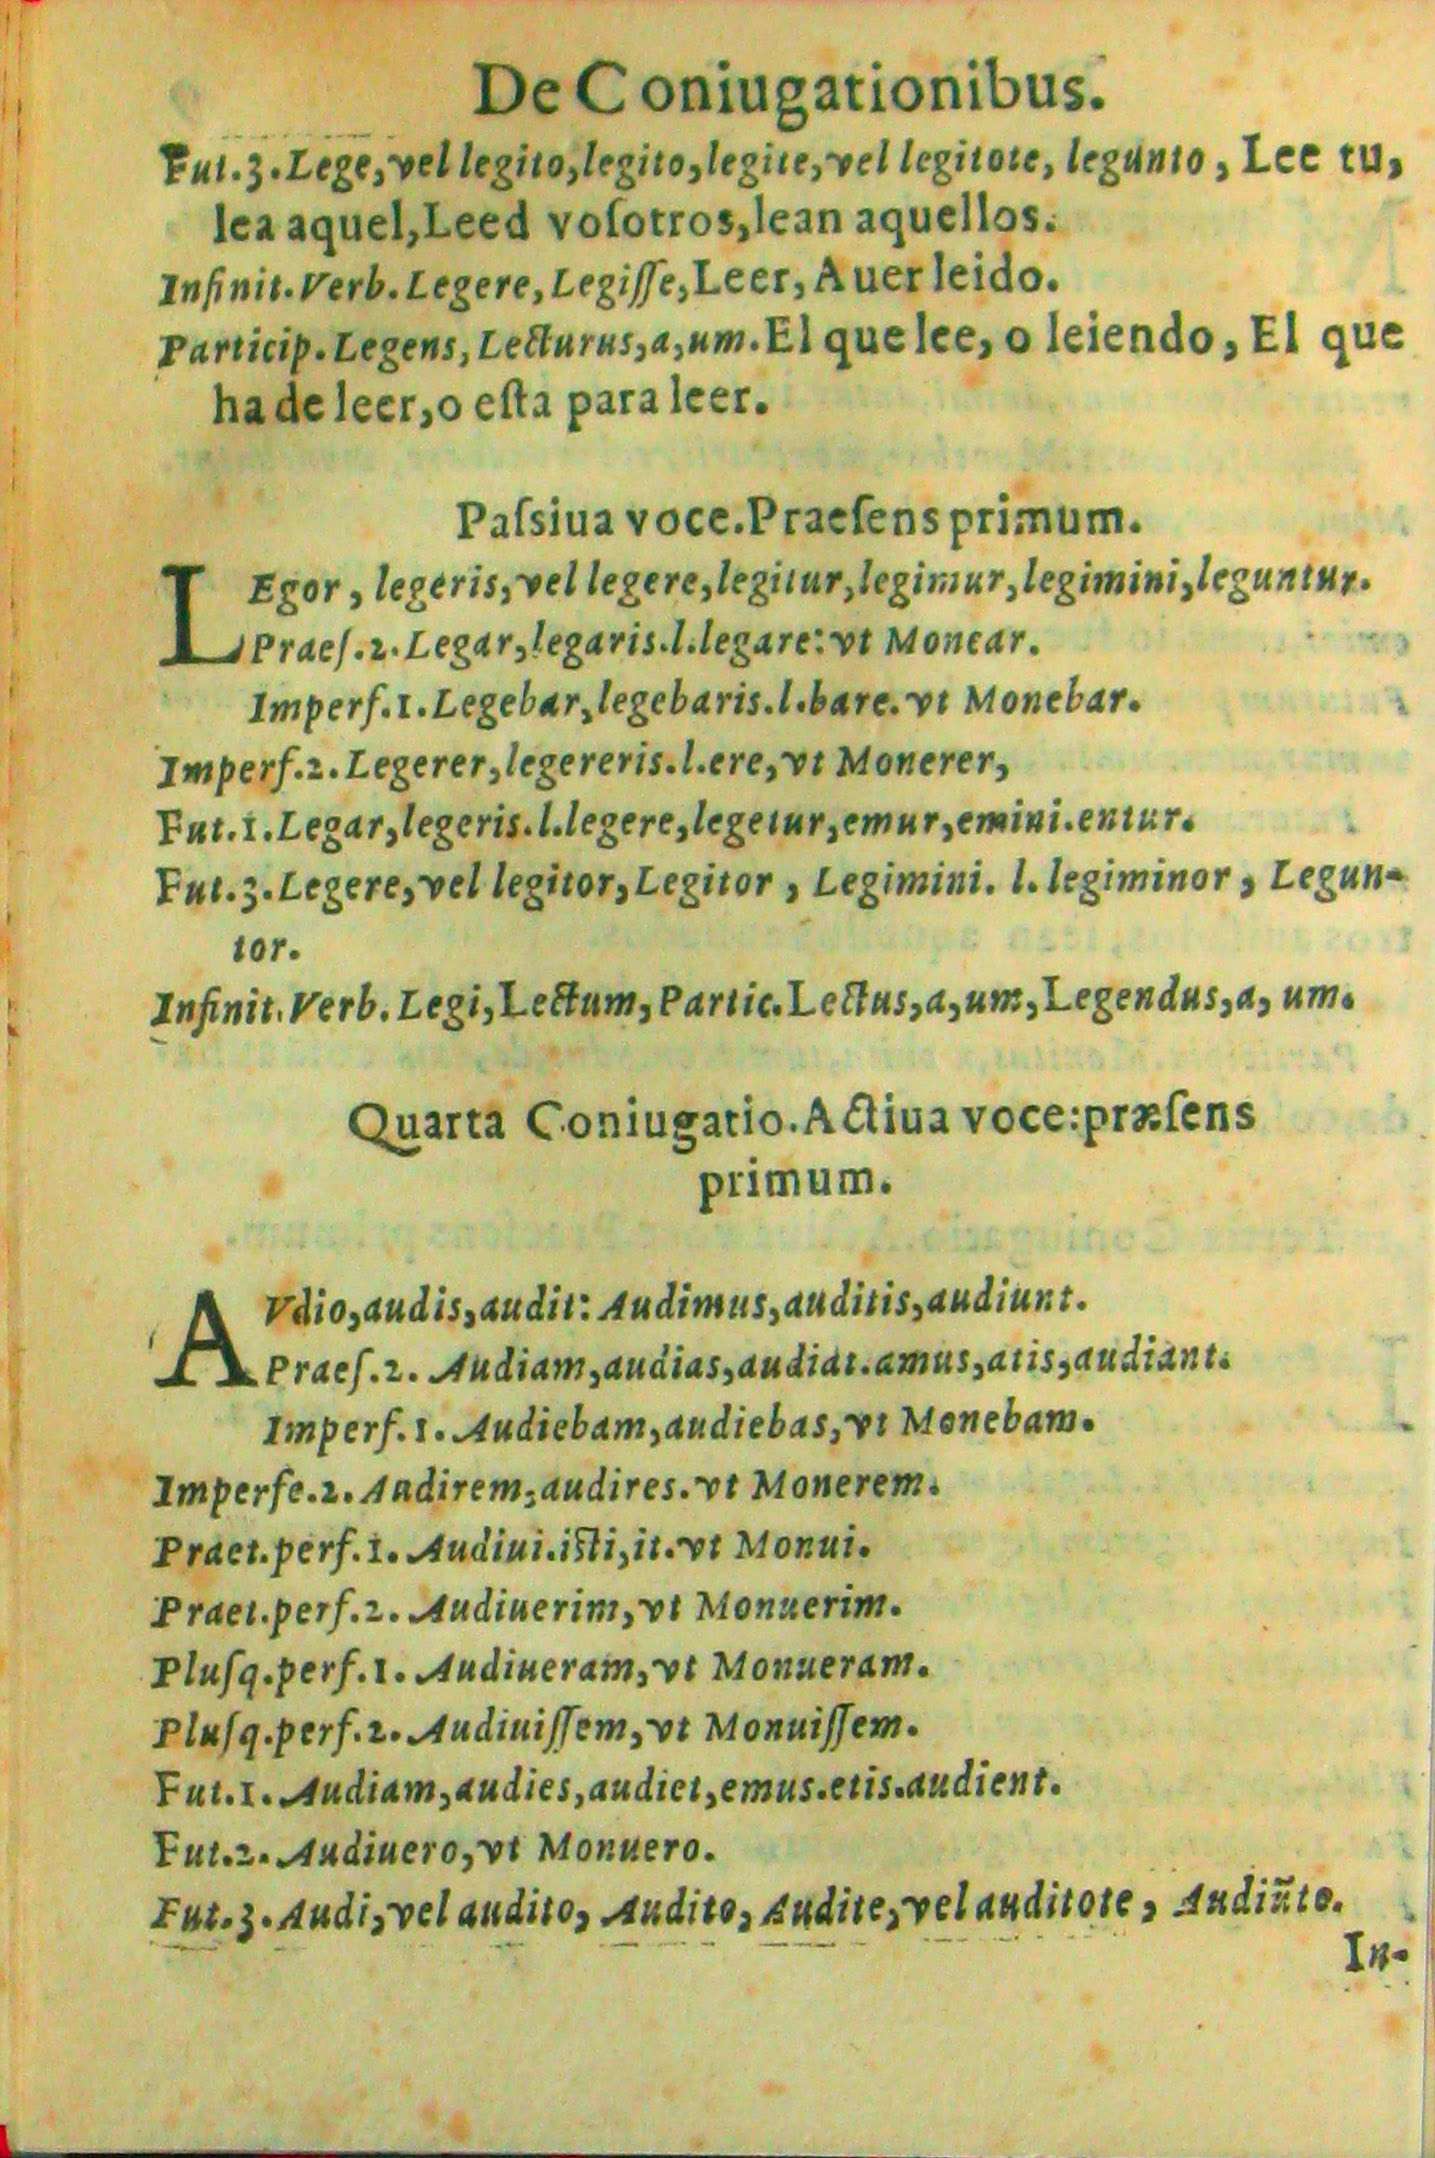 De Coniugationibus.
Fut.3.Lege,vel legito,legito,legite,vel legitote, legunto, Lee tu,
lea aquel,Leed voſotros,lean aquellos.
Infinit.Verb.Legere,Legiſſe,Leer,Auer leido.
Particip.Legens,Lecturus,a,um.El que lee, o leiendo, El que
ha de leer,o eſta para leer.
Paſsiua voce.Praeſens primum.
LEgor, legeris,vel legere,legitur,legimur,legimini,leguntur.
Praeſ.2.Legar,legaris.l.legare:vt Monear.
Imperf.1.Legebar,legebaris.l.bare.vt Monebar.
Imperf.2.Legerer,legereris.l.ere,vt Monerer,
Fut.1.Legar,legeris.l.legere,legetur,emur,emini.entur.
Fut.3.Legere,vel legitor,Legitor, Legimini. l. legiminor, Legun-
tor.
Infinit.Verb.Legi,Lectum,Partic.Lectus,a,um,Legendus,a, um.
Quarta Coniugatio.Actiua voce:præſens
primum.
AVdio,audis,audit: Audimus,auditis,audiunt.
Praeſ.2. Audiam,audias,audiat.amus,atis,audiant.
Imperf.1.Audiebam,audiebas,vt Monebam.
Imperfe.2.Audirem,audires.vt Monerem.
Praet.perf.1.Audiui.iſti,it.vt Monui.
Praet.perf.2.Audiuerim,vt Monuerim.
Pluſq.perf.1.Audiueram,vt Monueram.
Pluſq.perf.2.Audiuiſſem,vt Monuiſſem.
Fut.1.Audiam,audies,audiet,emus.etis.audient.
Fut.2.Audiuero,vt Monuero.
Fut.3.Audi,vel audito, Audito, Audite,vel auditote, Audiũto.
In-